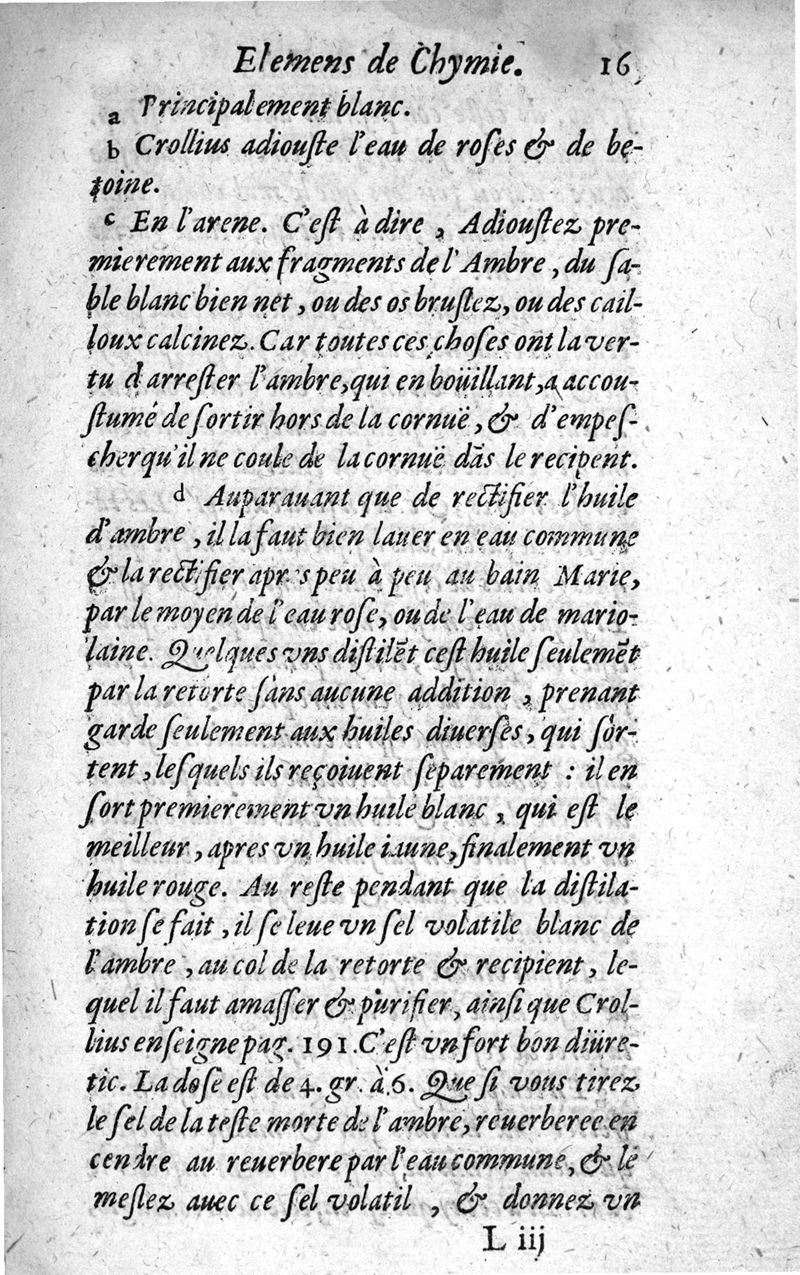 Elemens de Chymie. 16
a Principalement blanc.
b Crollius adiouſte l'eau de roſes & de be-
toine.
c En l'arene. C'eſt à dire , Adiouſtez pre-
mierement aux fragments de l'Ambre , du ſa-
ble blanc bien net , ou des os bruſlez, ou des cail-
loux calcinez. Car toutes ces choſes ont la ver-
tu d arreſter l'ambre, qui en boüillant, a accou-
ſtumé de ſortir hors de la cornuë , & d'empeſ-
cher qu'il ne coule de la cornuë dãs le recipent.
d Auparauant que de rectifier l'huile
d'ambre , il la faut bien lauer en eau commune
& la rectifier apres peu à peu au bain Marie,
par le moyen de l'eau roſe, ou de l'eau de mario-
laine. Quelques vns diſtilẽt ceſt huile ſeulemẽt
par la retorte ſans aucune addition , prenant
garde ſeulement aux huiles diuerſes, qui ſor-
tent , leſquels ils reçoiuent ſeparement : il en
ſort premierement vn huile blanc , qui eſt le
meilleur , apres vn huile iaune, finalement vn
huile rouge. Au reſte pendant que la diſtila-
tion ſe fait , il ſe leue vn ſel volatile blanc de
l'ambre , au col de la retorte & recipient, le-
quel il faut amaſſer & purifier, ainſi que Crol-
lius enſeigne pag. 191. C'eſt vn fort bon diüre-
tic. La doſe eſt de 4. gr. à 6. Que ſi vous tirez
le ſel de la teſte morte de l'ambre, reuerberee en
cendre au reuerbere par l'eau commune, & le
meſlez auec ce ſel volatil , & donnez vn
L iij